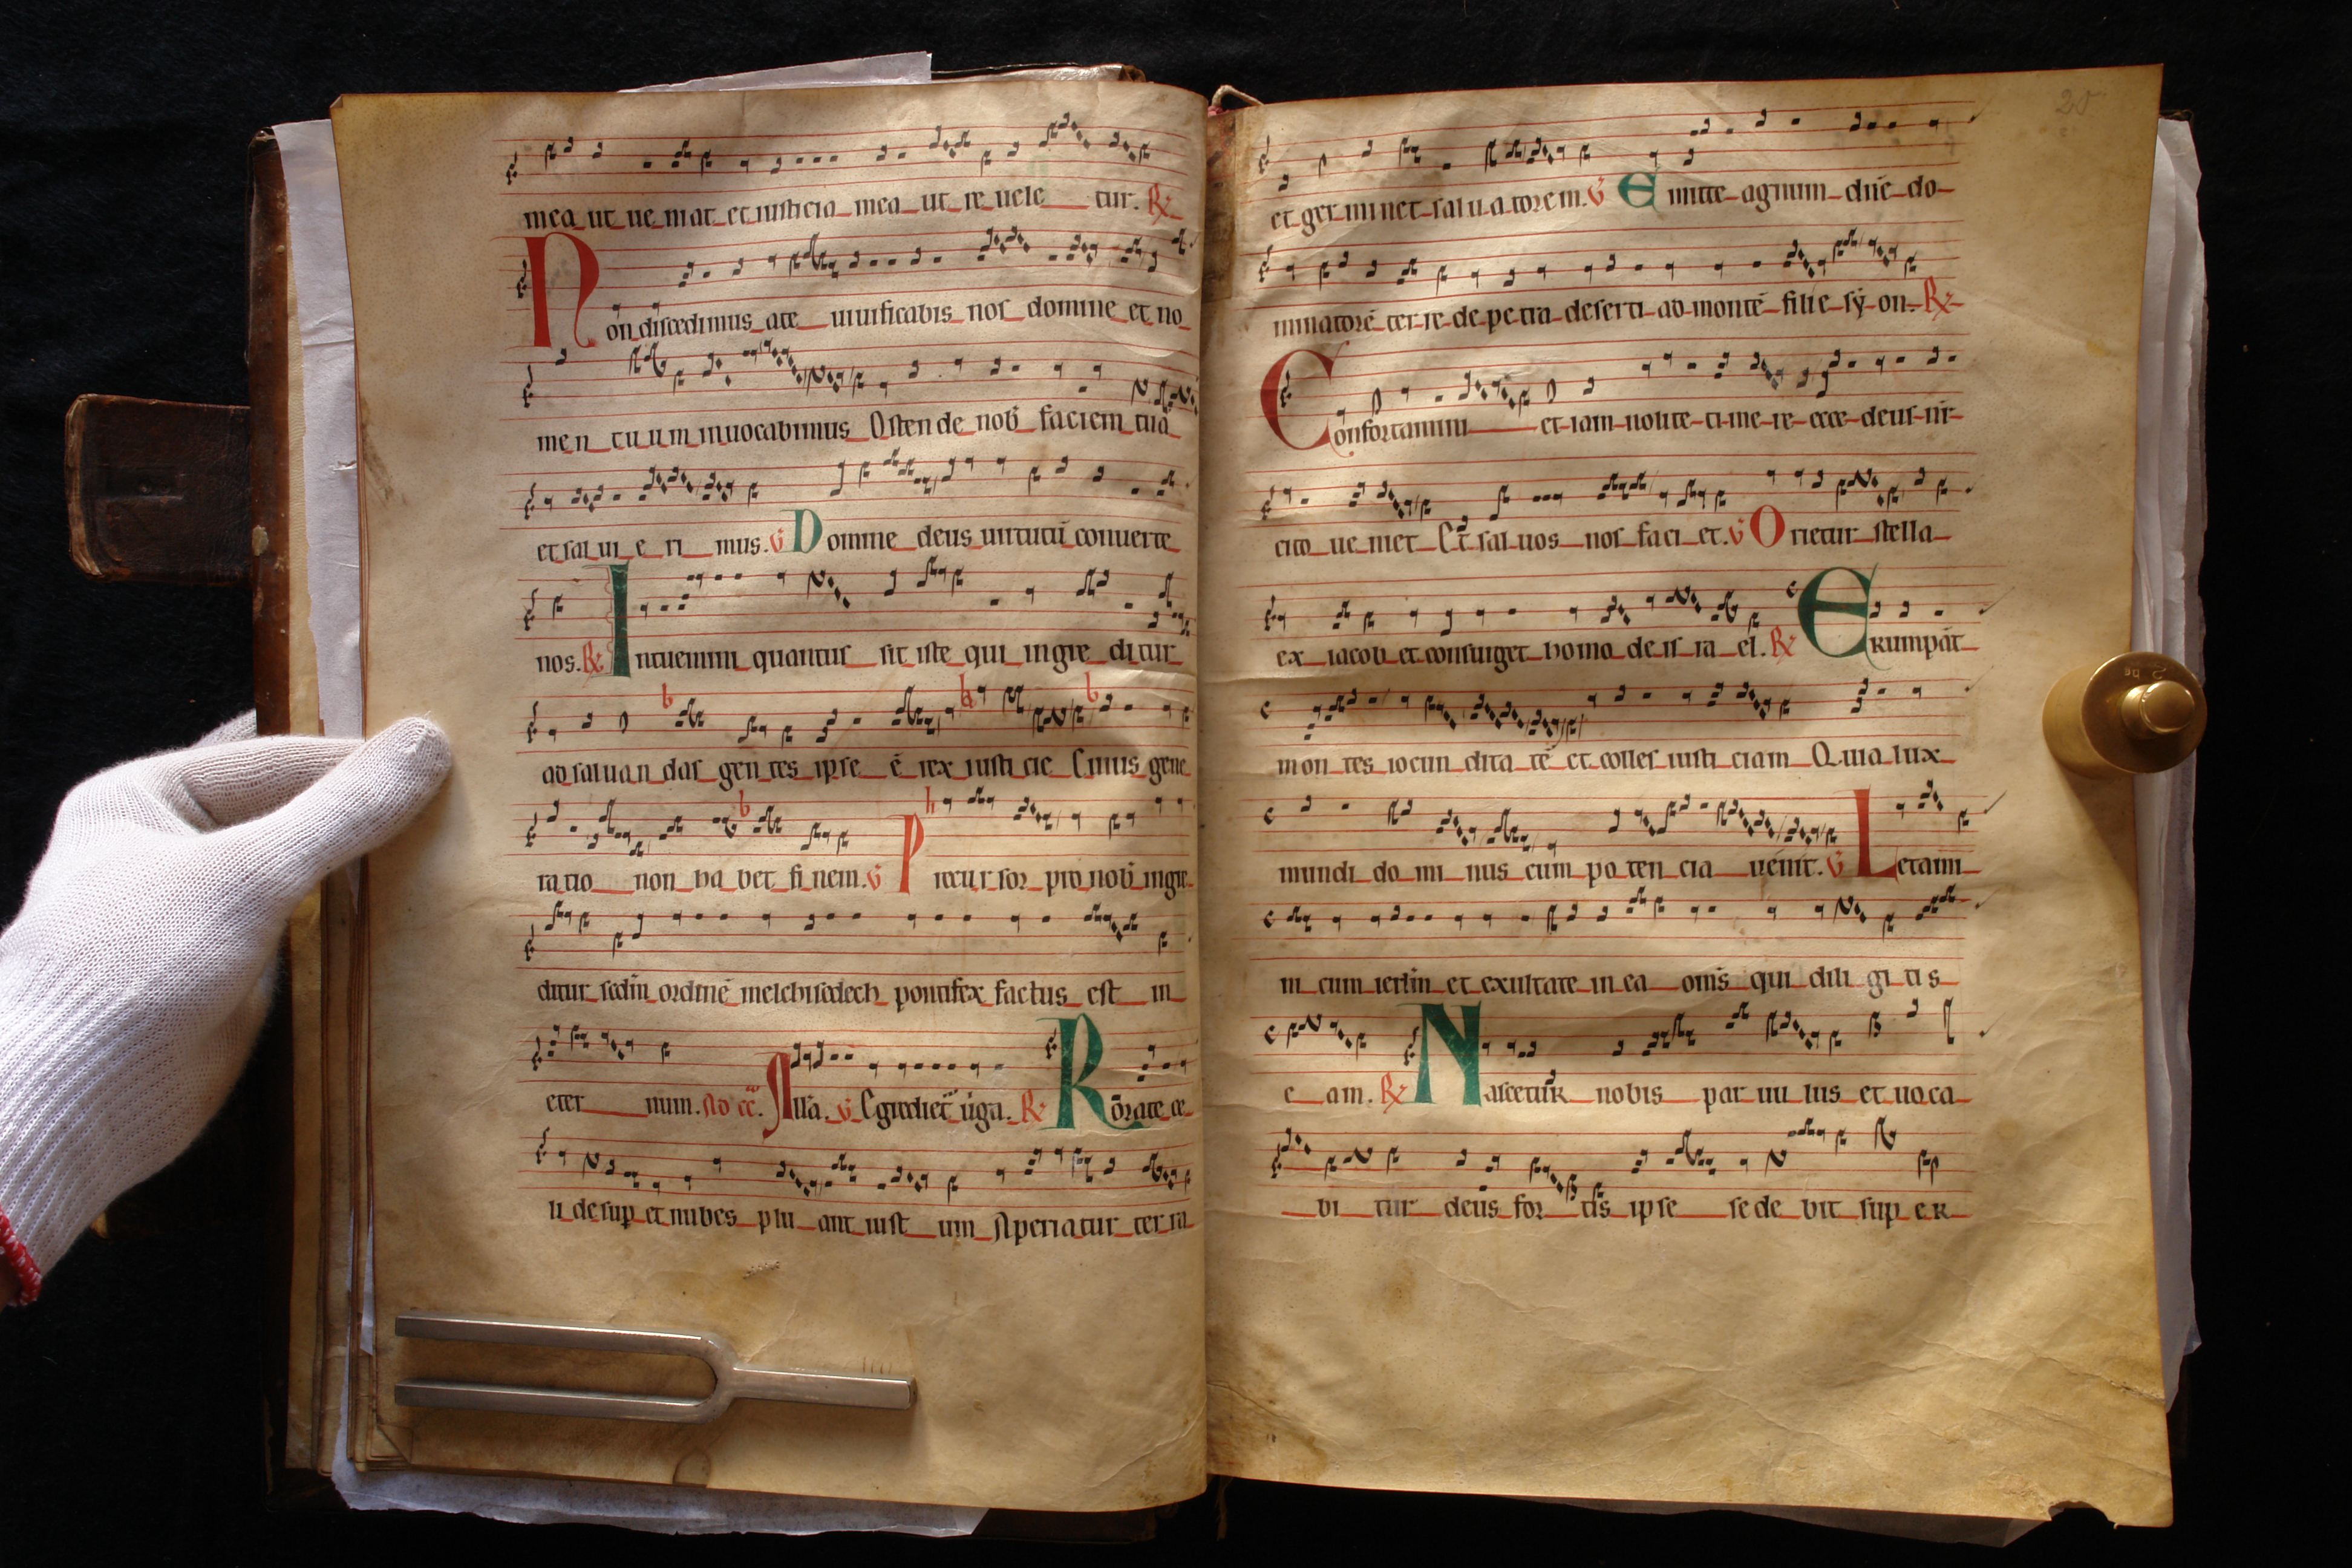 mea ut ue niat et iusticia mea ut re uele tur. R
Non discedimus a te uiuificabis nos domine et no
men tuum inuocabimus Osten de nob faciem tuā
et sal ui e ri mus. V Domine deus uirtutū conuerte
nos. R Intuemini quantus sit iste qui ingre ditur
ad saluan das gen tes ipse ē rex iusti cie Cuius gene
ratio non ha bet fi nem. V Precur sor pro nob ingre
ditur scdm ordinē melchisedech pontifex factus est in
eter num. V Egrediet uirga. R Rorate ce
li desup et nubes plu ant iust um Aperiatur ter ra
20
et ger mi net sal ua torem. V Emitte agnum dn̄e do
minatorē ter re de pe tra deserti ad montē filie sy on. R
Confortamini et iam nolite ti me re ecce deus nr̄
cito ue niet Et sal uos nos faci et. V Orietur stella
ex iacob et consurget homo de is ra el. R Erumpāt
mon tes iocun dita tē et colles iusti ciam Quia lux
mundi do mi nus cum po ten cia uenit. V Letami
ni cum ierl̄m et exultate in ea om̄s qui dili gi tis
e am. R Nascetur nobis par uu lus et uoca
bi tur deus for tis ipse se de bit sup er